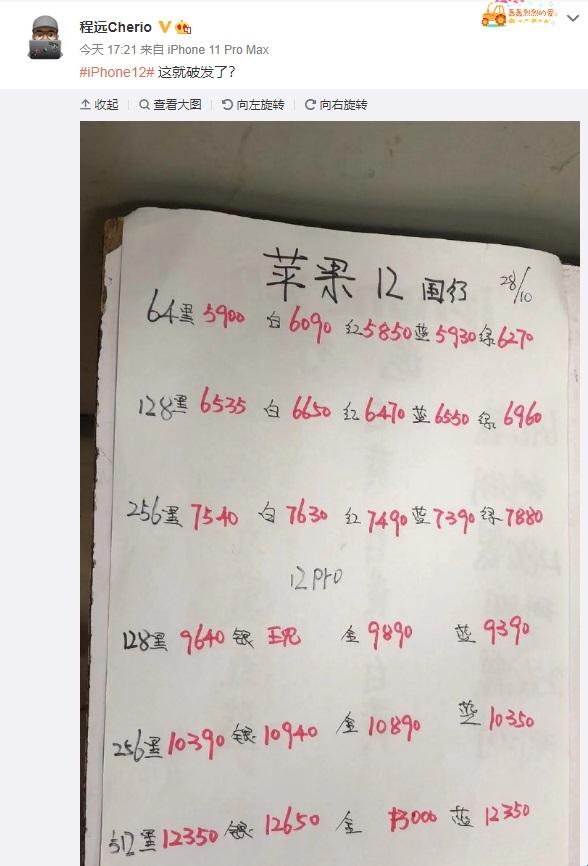 轰轰烈烈的爱
程远Cherio
今天 17:21 来自 iPhone 11 Pro Max
#iPhone12# 这就破发了?
收起 查看大图 向左旋转 向右旋转
苹果 12 国行 28/10
64黑 5900 白 6090 红 5850 蓝 5930 绿 6270
128黑 6535 白 6650 红 6470 蓝 6550 绿 6960
256黑 7540 白 7630 红 7490 蓝 7390 绿 7880
12 pro
128黑 9640 银 金 9890 蓝 9390
256黑 10390 银 10940 金 10890 蓝 10350
512黑 12350 银 12650 金 13000 蓝 12350